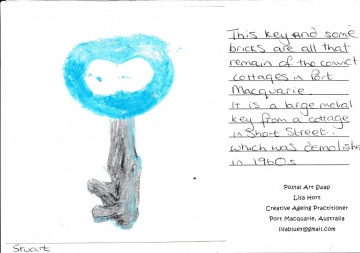 This key and some
bricks are all that
remain of the convict
cottages in Port
Macquarie.
It is a large metal
key from a cottage
in Short Street.
which was demolished
in 1960s
Postal Art Swap
Lisa Hort
Creative Ageing Practitioner
Port Macquarie, Australia
lisabluey@gmail.com
Stuart